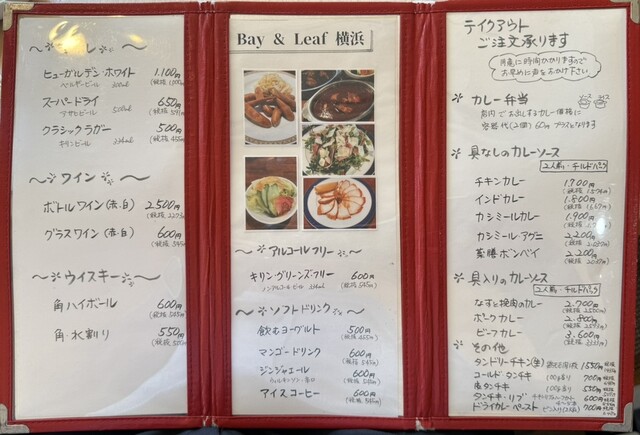 ～ビール～
ヒューガルデン・ホワイト 1,100円
ベルギービール 330ml (税抜 1,000円)
スーパードライ 650円
アサヒビール 500ml (税抜 591円)
クラシックラガー 500円
キリンビール 334ml (税抜 455円)
～ワイン～
ボトルワイン(赤・白) 2,500円
(税抜 2273円)
グラスワイン(赤・白) 600円
(税抜 545円)
～ウイスキー～
角ハイボール 600円
(税抜 545円)
角・水割り 550円
(税抜 500円)
Bay & Leaf 横浜
～アルコールフリー～
キリン・グリーンズフリー 600円
ノンアルコールビール 334ml (税抜 545円)
～ソフトドリンク～
飲むヨーグルト 500円
(税抜 455円)
マンゴードリンク 600円
(税抜 545円)
ジンジャエール 600円
ウィルキンソン・辛口 (税抜 545円)
アイスコーヒー 600円
(税抜 545円)
テイクアウト
ご注文承ります
用意に時間かかりますので
お早めに声をお掛け下さい
カレー弁当
店内でお出しするカレー価格に
容器代(2個)60円プラスになります
具なしのカレーソース
2人前・チルドパック
チキンカレー 1,700円
インドカレー 1,800円
カシミールカレー 1,900円
カシミール・アグニ 2,200円
薬膳ボンベイ 2,200円
具入りのカレーソース
2人前・チルドパック
なすと挽肉のカレー 2,700円
ポークカレー 2,800円
ビーフカレー 3,600円
その他
タンドリーチキン(生) 1,550円
コールド・タンチキ 100g当り 700円
庄タンチキ 100g当り 550円
タンチキ・リブ 600円
ドライカレーペースト 700円